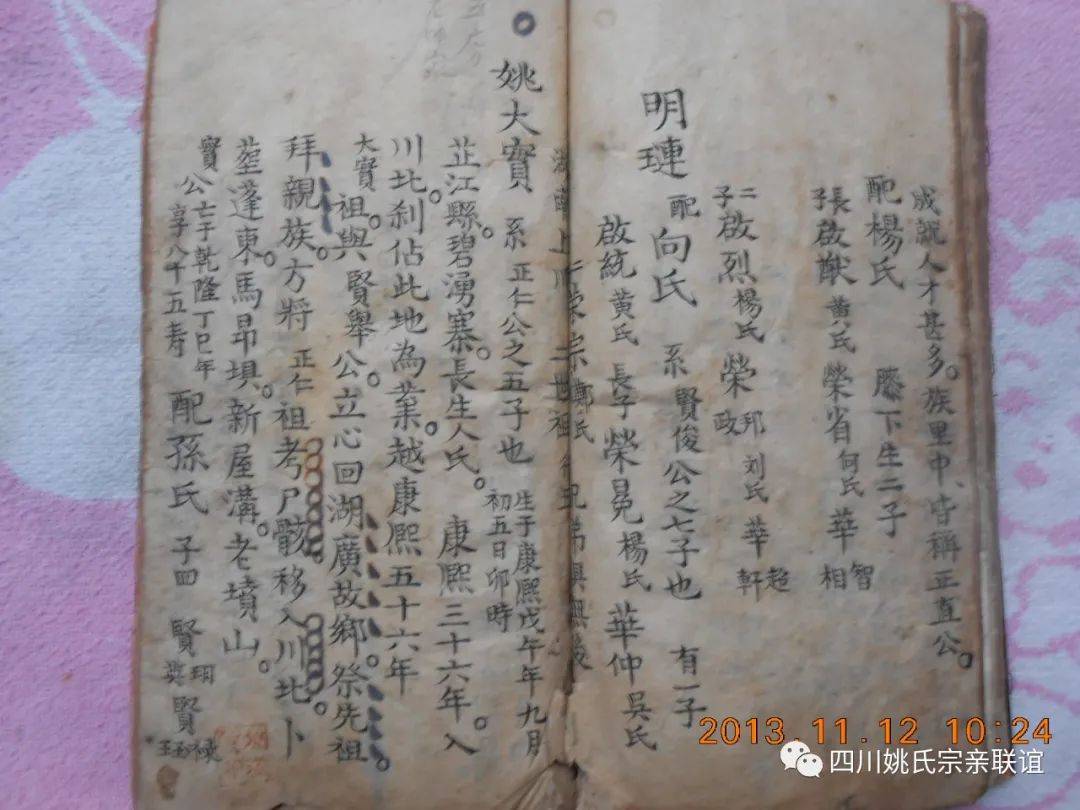 成就人才甚多。族里中、皆稱正直公。
配楊氏 膝下生二子
長子啟猷 黄氏 榮省 何氏 華智相
二子啟烈 楊氏 榮邦政 刘氏 華超軒
明璉 配向氏 系賢俊公之七子也 有一子
啟統 黄氏 長子榮冕 楊氏 華仲 吳氏
上川 二世祖
榮宗
姚大寳 系正仁公之五子也 生于康熙戊午年九月初五日卯時
芷江縣。碧湧寨。長生人氏。康熙三十六年。入
川北剎佔此地為業。越康熙五十六年
大寳祖。與賢舉公。立心回湖廣故鄉。祭先祖
拜親族。方將正仁祖考尸骸。移入川北。卜
塟蓬東。馬昂垻。新屋溝。老墳山。
寳公亡于乾隆丁巳年 享八十五寿 配孫氏 子四 賢
2013.11.12 10:24
四川姚氏宗亲联谊